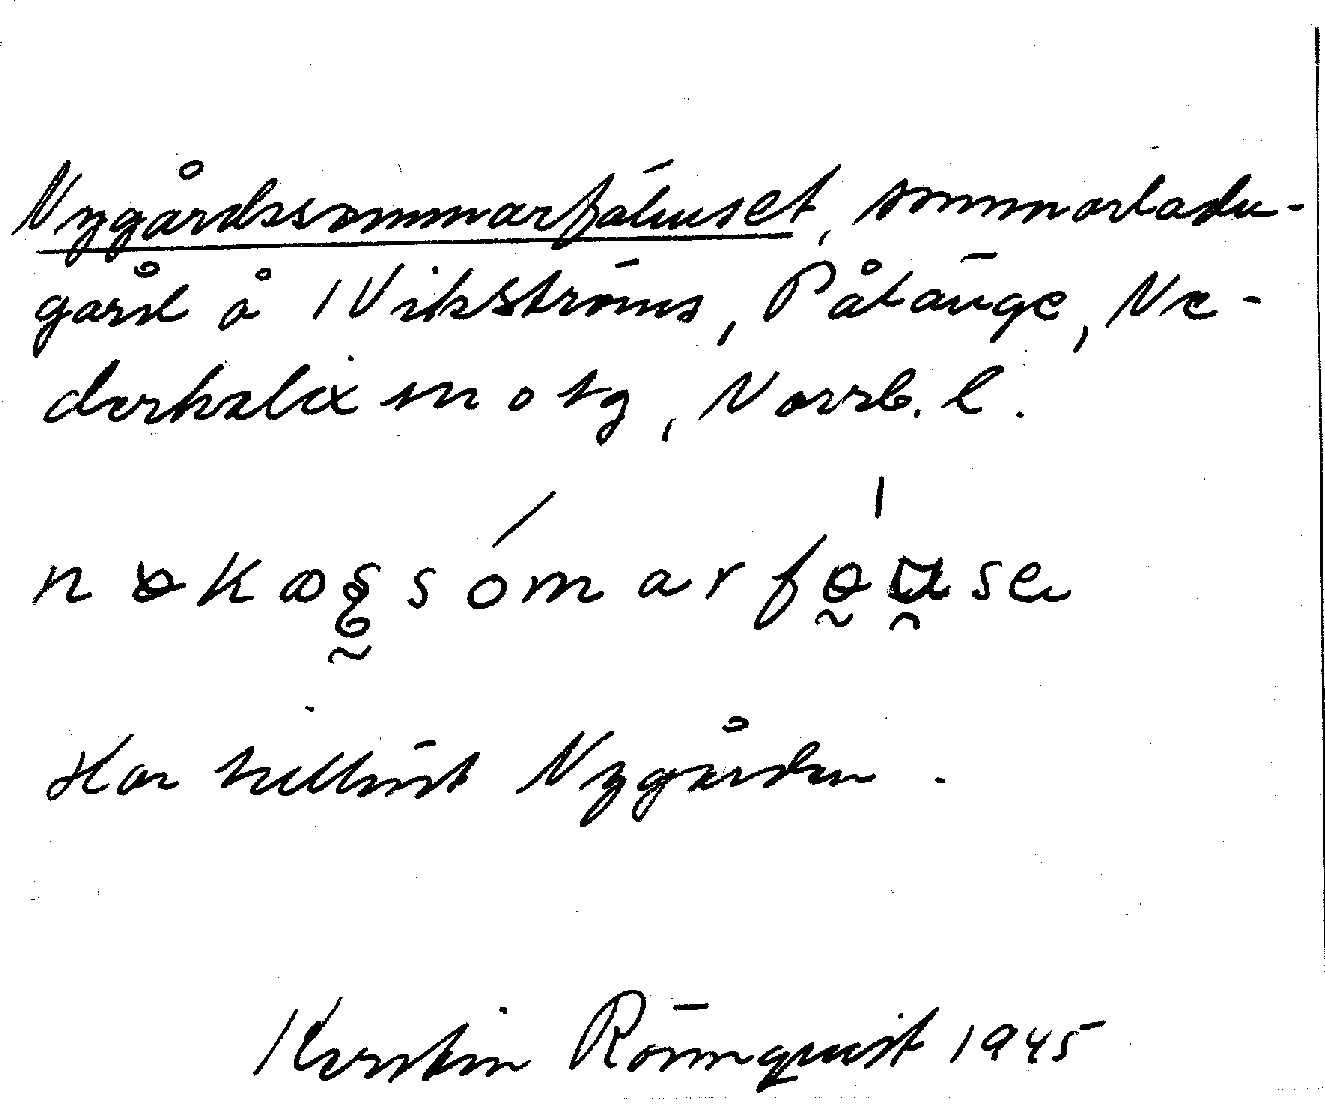 Nygårdssommarfähuset, sommarladu-
gård å Vikströms, Påläng​e, Ne-
derkalix sn o tg, Norrb. l.
Har tillhört Nygården.
Kerstin Rönnquist 1945